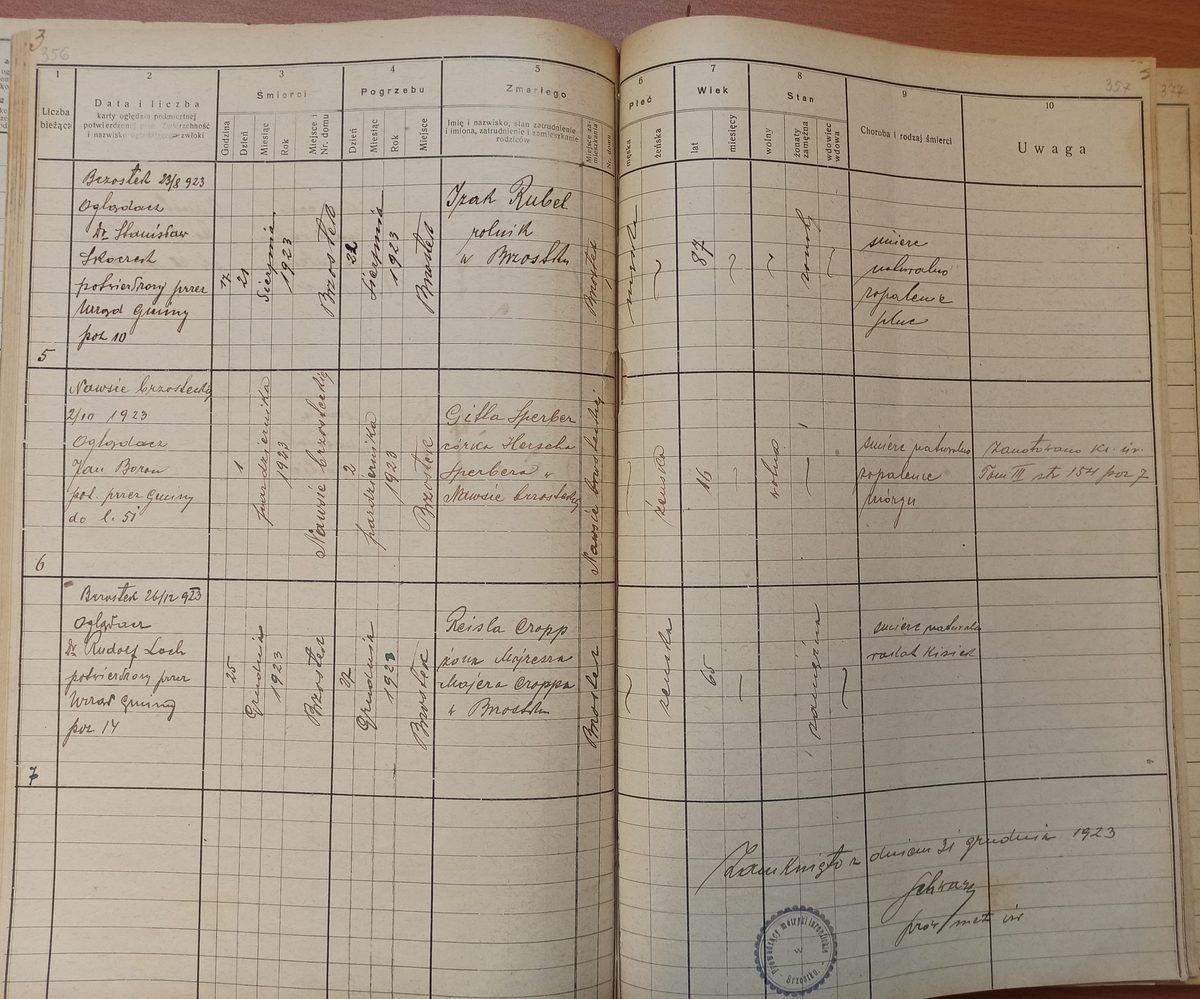 3
356
1
2
3
4
5
Liczba
bieżąca
Data i liczba
karty oględzin pośmiertnej
potwierdzonej przez Zwierzchność
i nazwisko
zwłoki
Śmierci
Godzina
Dzień
Miesiąc
Rok
Miejsce i
Nr. domu
Pogrzebu
Dzień
Miesiąc
Rok
Miejsce
Zmarłego
Imię i nazwisko, stan zatrudnienie
i imiona, zatrudnienie i zamieszkanie
rodziców
Miejsce za-
mieszkania
Nr. domu
357
3
377
6
7
8
9
10
Płeć
męska
żeńska
Wiek
lat
miesięcy
Stan
wolny
żonaty
zamężna
wdowiec
wdowa
Choroba i rodzaj śmierci
Uwaga
5
Brzostek 23/8 923
Oglądacz
Dr. Stanisław
potwierdzony przez
Urząd Gminy
poz 10
21
Sierpnia
1923
Brzostek
22
Sierpnia
1923
Brzostek
Izak Rubel
rolnik
w Brzostku
Brzostek
męska
87
żonaty
śmierć
naturalna
zapalenie
płuc
6
Nawsie brzosteckie
2/10 1923
Oglądacz
Jan Boron
pot. przez Gminy
do l. 51
1
października
1923
Nawsie brzosteckie
2
października
1923
Brzostek
Gitla Sperber
córka Herscha
Sperbera w
Nawsie brzosteckiej
Nawsie brzosteckiej
żeńska
16
wolna
śmierć naturalna
zapalenie
mózgu
Zanotowano Ks. ur.
Tom III str 154 poz 7
7
Brzostek 26/12 923
Oglądacz
Dr. Rudolf Loch
potwierdzony przez
Urząd Gminy
poz 14
25
Grudnia
1923
Brzostek
27
Grudnia
1923
Brzostek
Reisla Cropp
żona
Majera Croppa
w Brzostku
Brzostek
żeńska
65
zamężna
śmierć naturalna
Zamknięto z dniem 31 grudnia 1923
Schwarz
prow. metr. izr
Prowadzący metryki izraelickie
w
Brzostku.